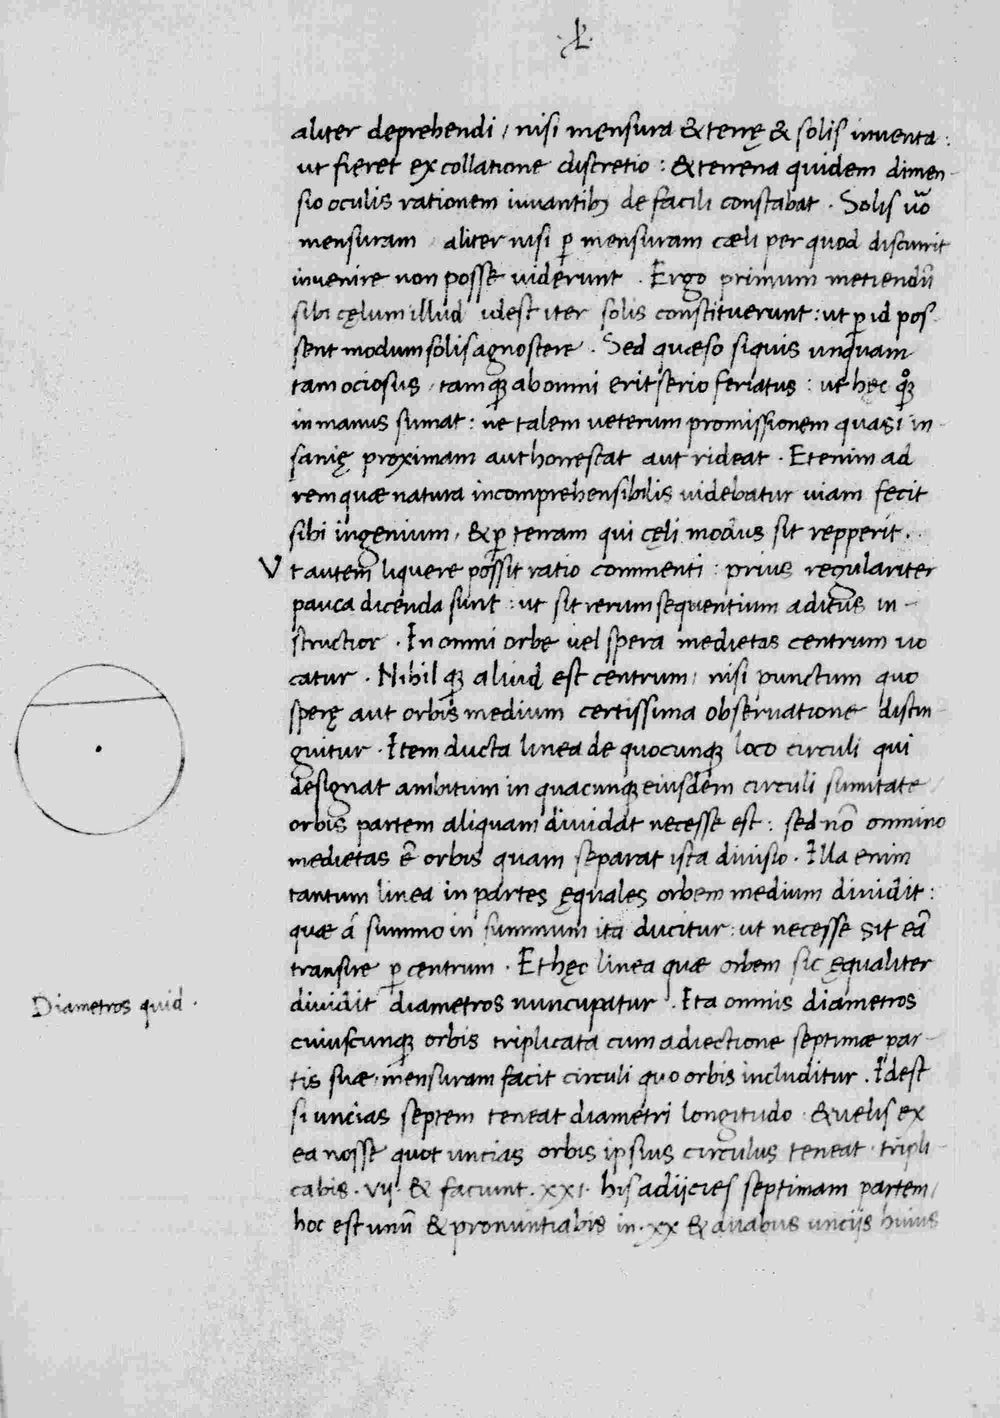 aliter deprehendi / nisi mensura & terrę & solis inventa :
ut fieret ex collatione discretio : & terrena quidem dimen-
sio oculis rationem iuvantibꝫ de facili constabat . Solis ũo
mensuram aliter nisi ꝑ mensuram cæli per quod discurrit
invenire non posse viderunt . Ergo primum metiendũ
sibi cęlum illud idest iter solis constituerunt : ut ꝑ id pos-
sent modum solis agnoscere . Sed quæso siquis unquam
tam ociosus / tamqꝫ ab omni erit serio feriatus : ut hęc qͦꝫ
in manus sumat : ne talem veterum promissionem quasi in-
sanię proximam aut horrescat aut rideat . Etenim ad
rem quæ natura incomprehensibilis videbatur viam fecit
sibi ingenium , & ꝑ terram qui cęli modus sit repperit .
Vt autem liquere possit ratio commenti : prius regulariter
pauca dicenda sunt : ut sit rerum sequentium aditus in-
structior . In omni orbe vel spera medietas centrum vo
catur . Nihil qꝫ aliud est centrum / nisi punctum quo
sperę aut orbis medium certissima observatione distin
guitur . Item ducta linea de quocunqꝫ loco circuli qui
designat ambitum in quacunqꝫ eiusdem circuli sumitate
orbis partem aliquam dividat necesse est : sed nõ omnino
medietas ẽ orbis quam separat ista divisio . Illa enim
tantum linea in partes ęquales orbem medium dividit :
quæ á summo in summum ita ducitur : ut necesse sit eã
transire ꝑ centrum . Et hęc linea quæ orbem sic ęqualiter
dividit diametros nuncupatur . Ita omnis diametros
Diametros quid .
cuiuscunqꝫ orbis triplicata cum adiectione septimæ par-
tis suæ mensuram facit circuli quo orbis includitur . Idest
si uncias septem teneat diametri longitudo & velis ex
ea nosse quot uncias orbis ipsius circulus teneat tripli-
cabis . vij . & faciunt . xxi . his adijcies septimam partem /
hoc est unũ & pronuntiabis in . xx & duabus uncijs huius